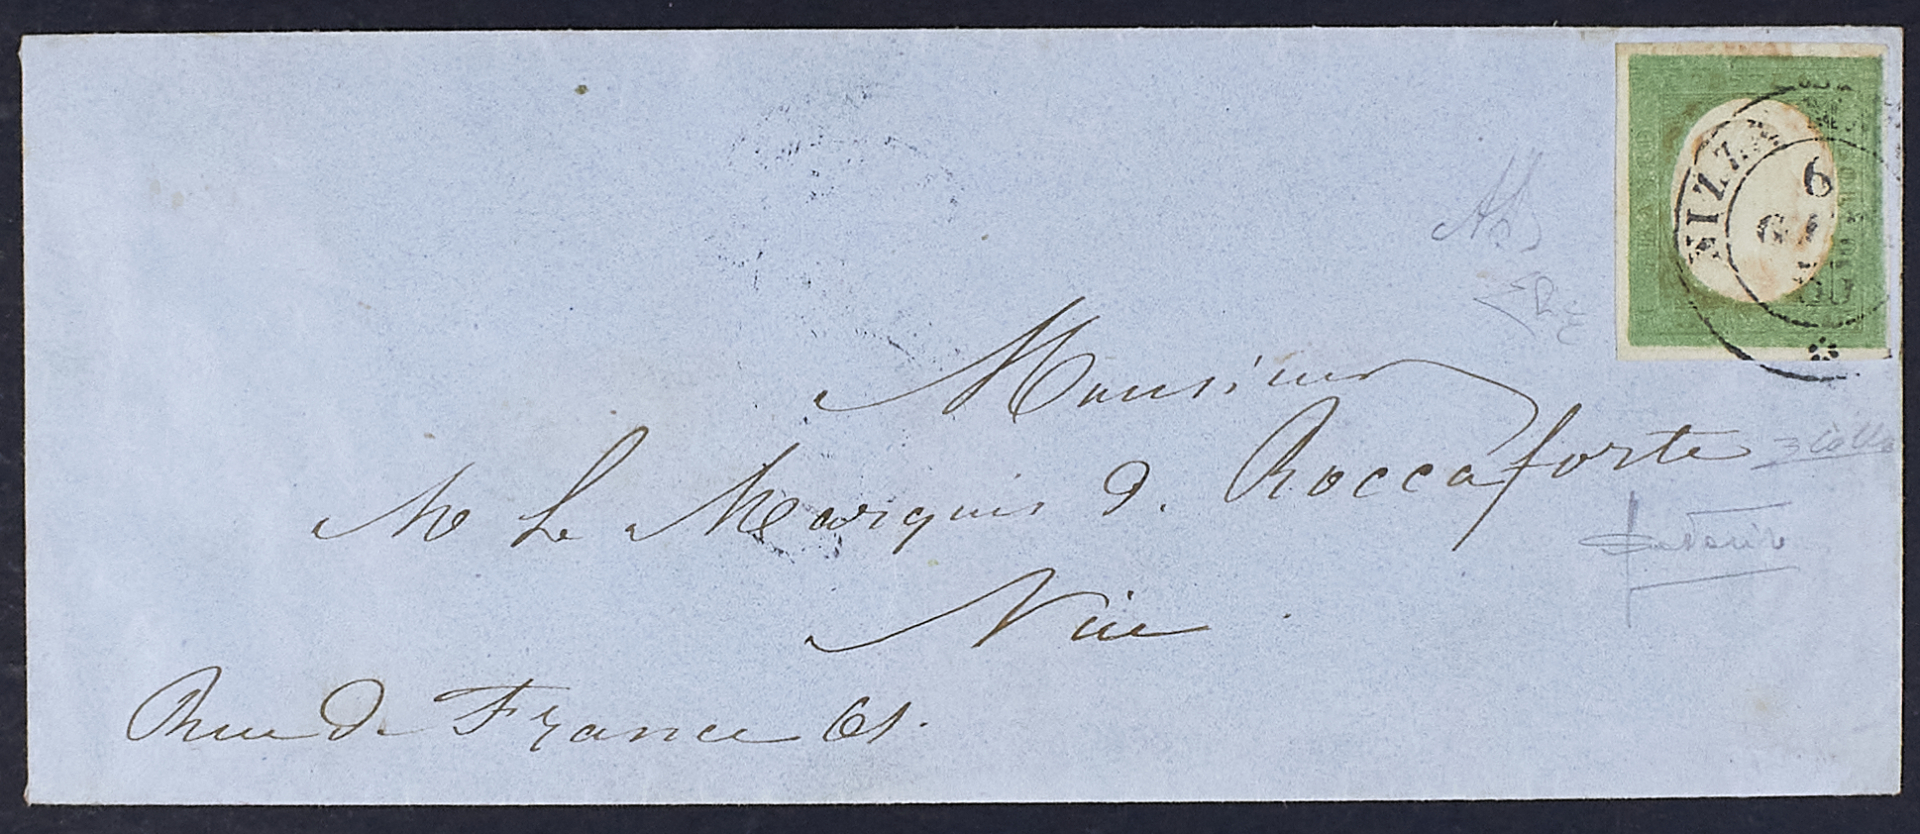 NIZZA
6
GI
60
Monsieur
Mr Le Marquis d. Roccaforte
Nice
Rue de France 61.